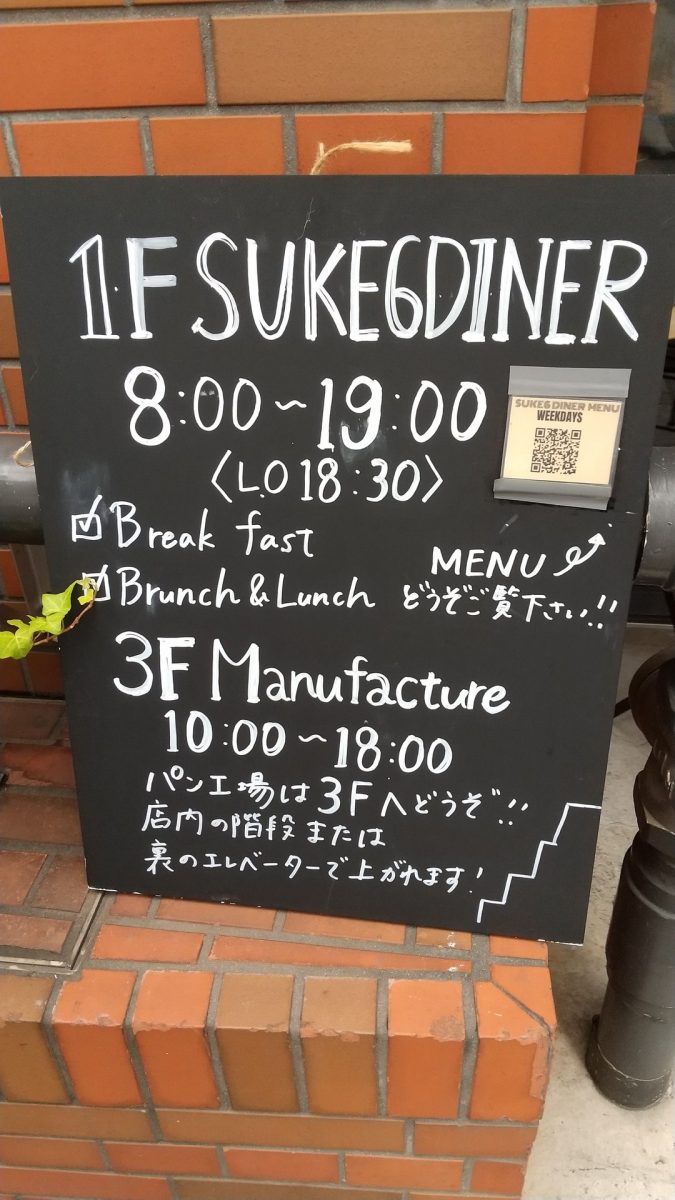 1F SUKE6DINER
8:00~19:00
〈L.O 18:30〉
SUKE6 DINER MENU
WEEKDAYS
Break fast
Brunch & Lunch
MENU
どうぞご覧下さい!!
3F Manufacture
10:00~18:00
パン工場は3Fへどうぞ!!
店内の階段または
裏のエレベーターで上がれます!